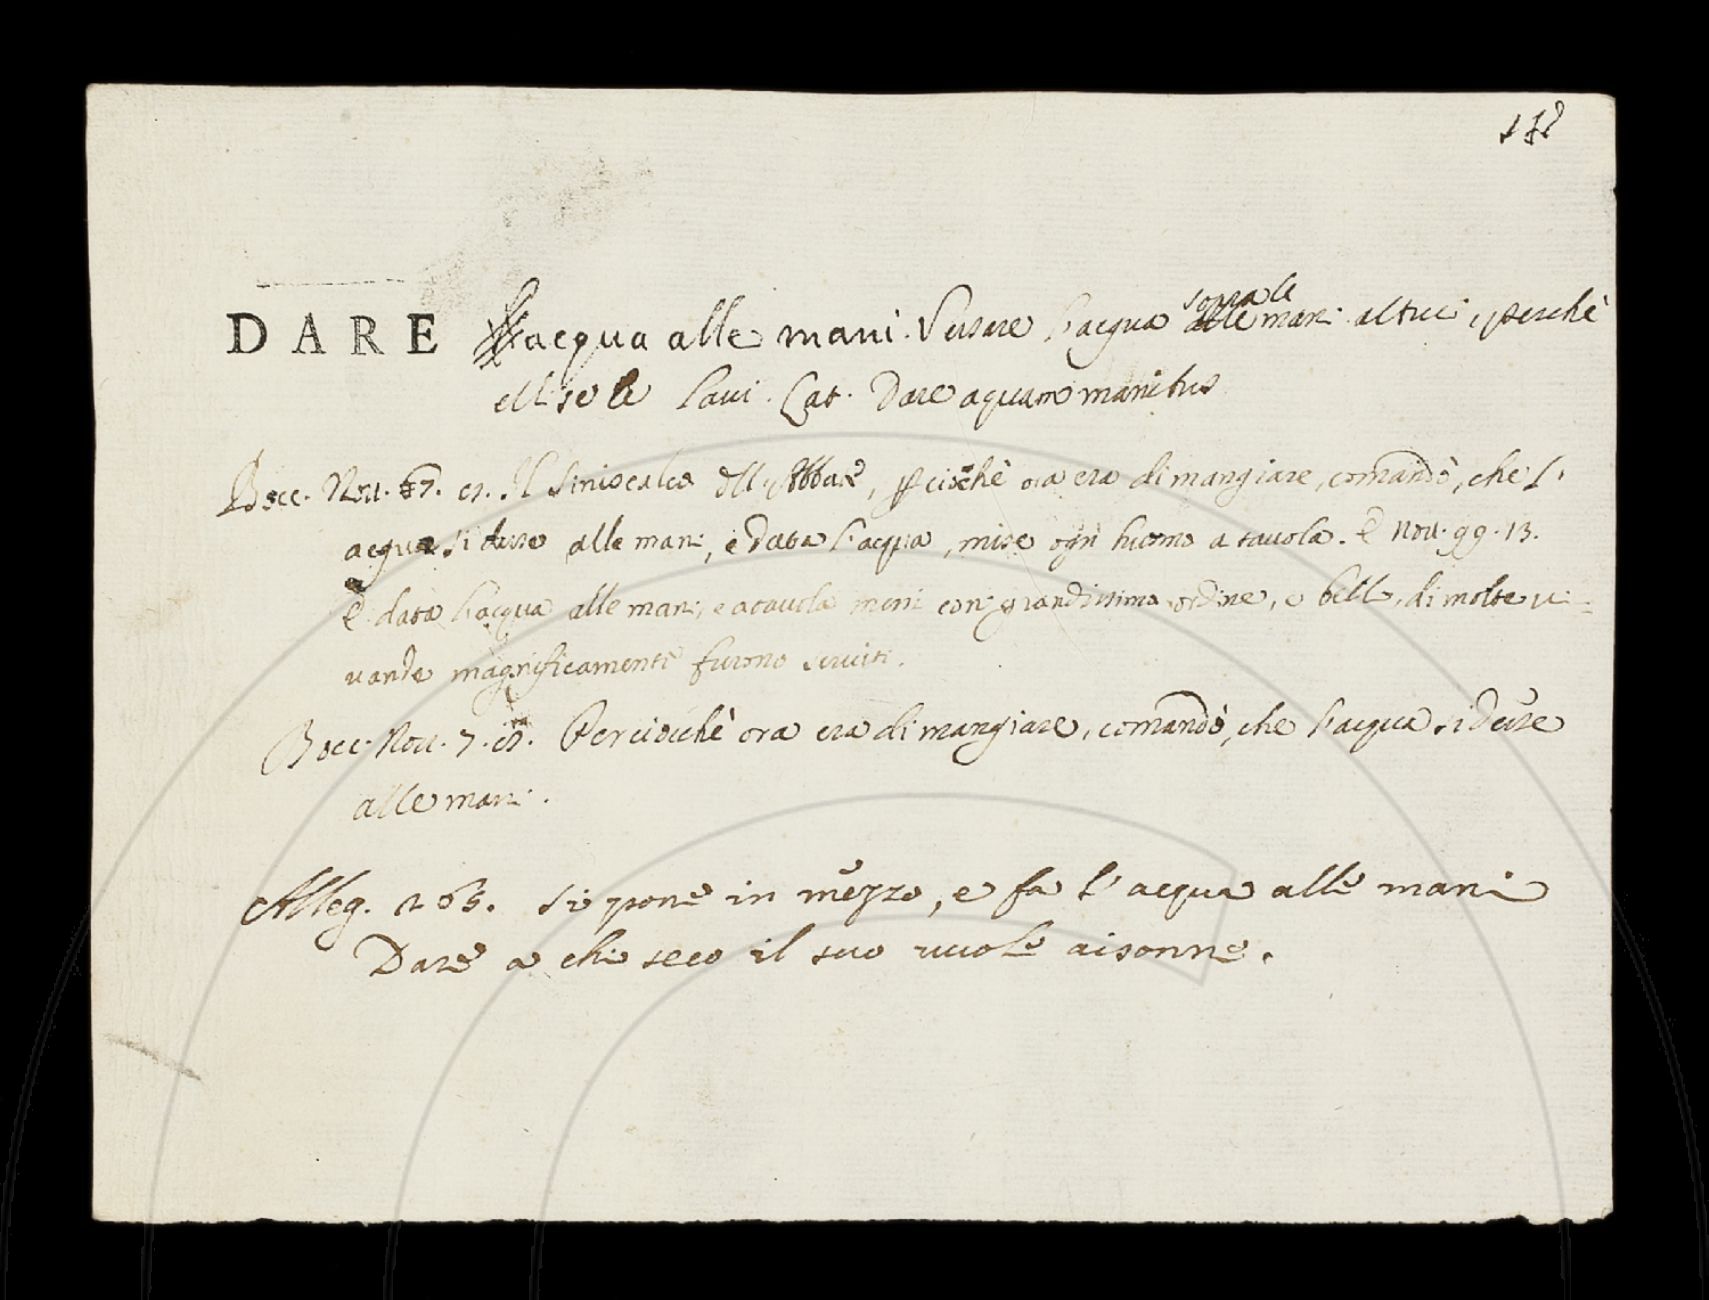 DARE l'acqua alle mani. Versare l'acqua sopra le mani altrui, perchè
elli se le lavi. Lat. Dare aquam manibus
Bocc. Nov. 7. Il Siniscalco dell'Abbate, perciochè ora era di mangiare, comandò, che l'
acqua si desse alle mani, e data l'acqua, mise ogni huomo a tavola. E Nov. 99. 13.
E data l'acqua alle mani, e a tavola messi con grandissimo ordine, e bello, di molte vi=
vande magnificamente furono serviti.
Bocc. Nov. 7. Perciochè ora era di mangiare, comandò, che l'acqua si desse
alle mani.
Alleg. 265. Si pone in mezzo, e fa l'acqua alle mani
Dare a chi seco il suo vuole aisonne.